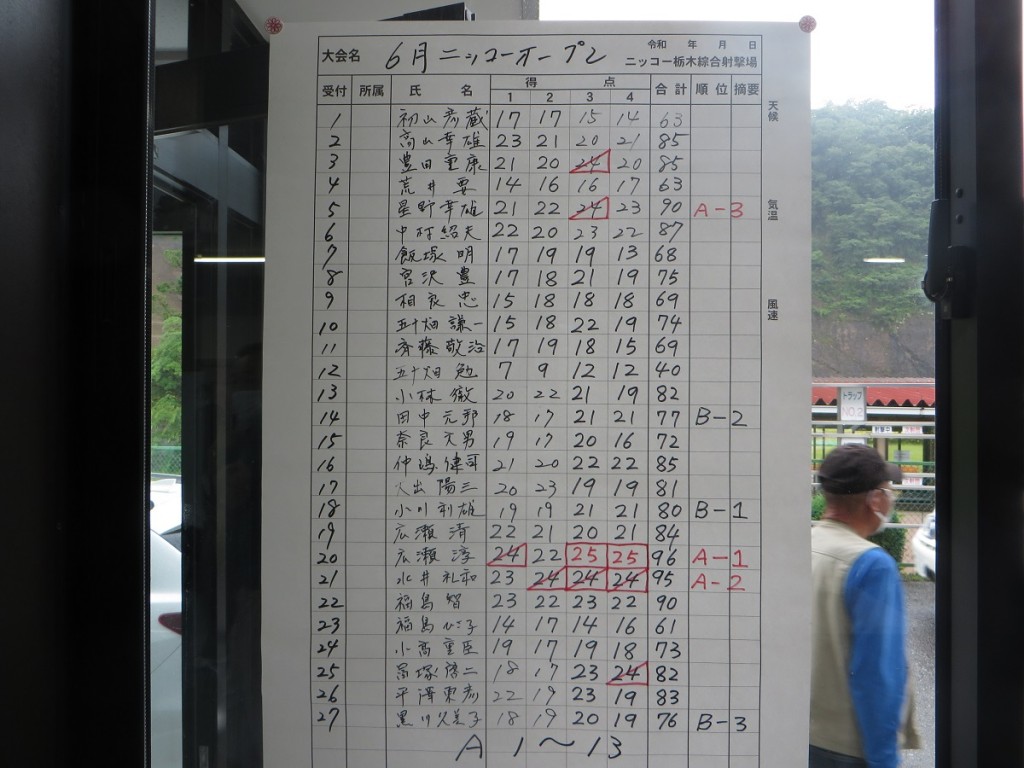 大会名 6月ニッコーオープン 令和 年 月 日
ニッコー栃木綜合射撃場
受付 所属 氏 名 得 点 合計 順位 摘要
1 2 3 4
1 初山彦蔵 17 17 15 14 63
2 高山幸雄 23 21 20 21 85
3 豊田重康 21 20 24 20 85
4 荒井要 14 16 16 17 63
5 星野幸雄 21 22 24 23 90 A-3
6 中村紹夫 22 20 23 22 87
7 飯塚明 17 19 19 13 68
8 宮沢豊 17 18 21 19 75
9 相良忠 15 18 18 18 69
10 五十畑謙一 15 18 22 19 74
11 斉藤敬治 17 19 18 15 69
12 五十畑勉 7 9 12 12 40
13 小林徹 20 22 21 19 82
14 田中元邦 18 17 21 21 77 B-2
15 奈良文男 19 17 20 16 72
16 仲嶋健司 21 20 22 22 85
17 陽三 20 23 19 19 81
18 小川利雄 19 19 21 21 80 B-1
19 広瀬清 22 21 20 21 84
20 広瀬淳 24 22 25 25 96 A-1
21 水井礼和 23 24 24 24 95 A-2
22 福島智 23 22 23 22 90
23 福島 14 17 14 16 61
24 小高重臣 19 17 19 18 73
25 18 17 23 24 82
26 平澤東彦 22 19 23 19 83
27 黒川久美子 18 19 20 19 76 B-3
A 1〜13
天候
気温
風速
トラップ